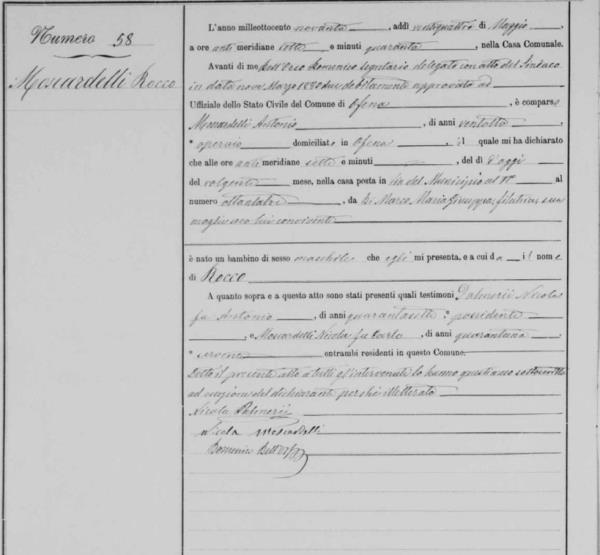 Numero 58
Moscardelli Rocco
L'anno milleottocento novanta, addì ventiquattro di Maggio,
a ore anti meridiane sette e minuti quaranta, nella Casa Comunale.
Avanti di me Dell'Orso Domenico segretario delegato con atto del Sindaco
in data nove Marzo debitamente approvato ad
Uffiziale dello Stato Civile del Comune di Ofena, è comparso
Moscardelli Antonio, di anni ventotto
operaio domiciliato in Ofena, il quale mi ha dichiarato
che alle ore anti meridiane sette e minuti, del dì d'oggi
del volgente mese, nella casa posta in Via del Municipio al N° al
numero ottantatre, da Di Marco Maria Giuseppa, filatrice, sua
moglie seco lui convivente
è nato un bambino di sesso maschile che egli mi presenta, e a cui dà il nome
di Rocco
A quanto sopra e a questo atto sono stati presenti quali testimoni Palmerii Nicola
fu Antonio, di anni quarantasette, possidente
, e Moscardelli Nicola fu Carlo, di anni quarantuno
entrambi residenti in questo Comune.
Letto il presente atto a tutti gl'intervenuti lo hanno questi meco sottoscritto
ad eccezione del dichiarante perchè illetterato
Nicola Palmerii
Nicola Moscardelli
Domenico Dell'Orso